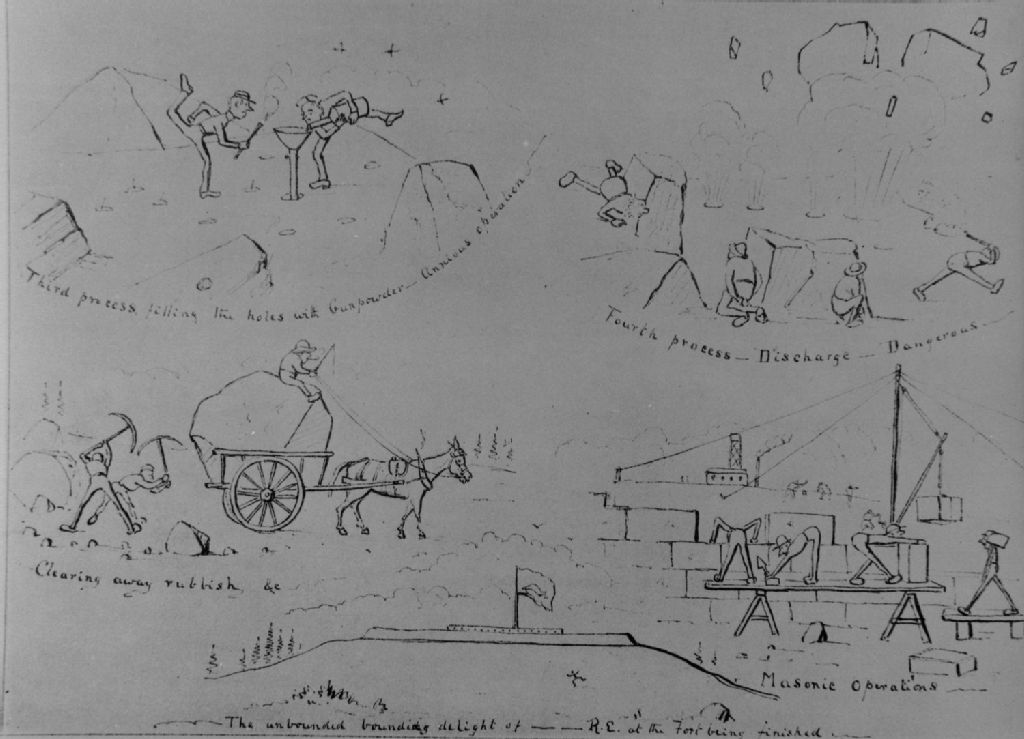 Third process, filling the holes with Gunpowder — Anxious situation
Fourth process — Discharge — Dangerous —
Clearing away rubbish, &c
Masonic Operations —
— The unbounded bounding delight of — R.E. at the Fort being finished. —